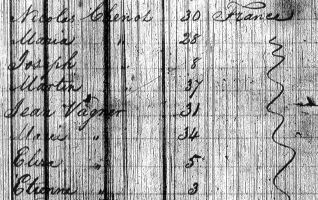 Nicolas Chenot 30 France
Maria " 28
Joseph " 8
Martin " 37
Jean Vagner 31
Marie " 34
Eliza " 5
Etienne " 3